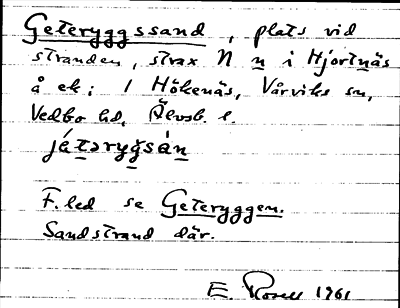 Geteryggssand, plats vid
stranden, strax N n i Hjortnäs
å ek; 1 Hökenäs, Vårviks sn,
Vedbo hd, Älvsb. l.
jétərygsán
F. led se Geteryggen.
Sandstrand där.
E. Rosell 1961